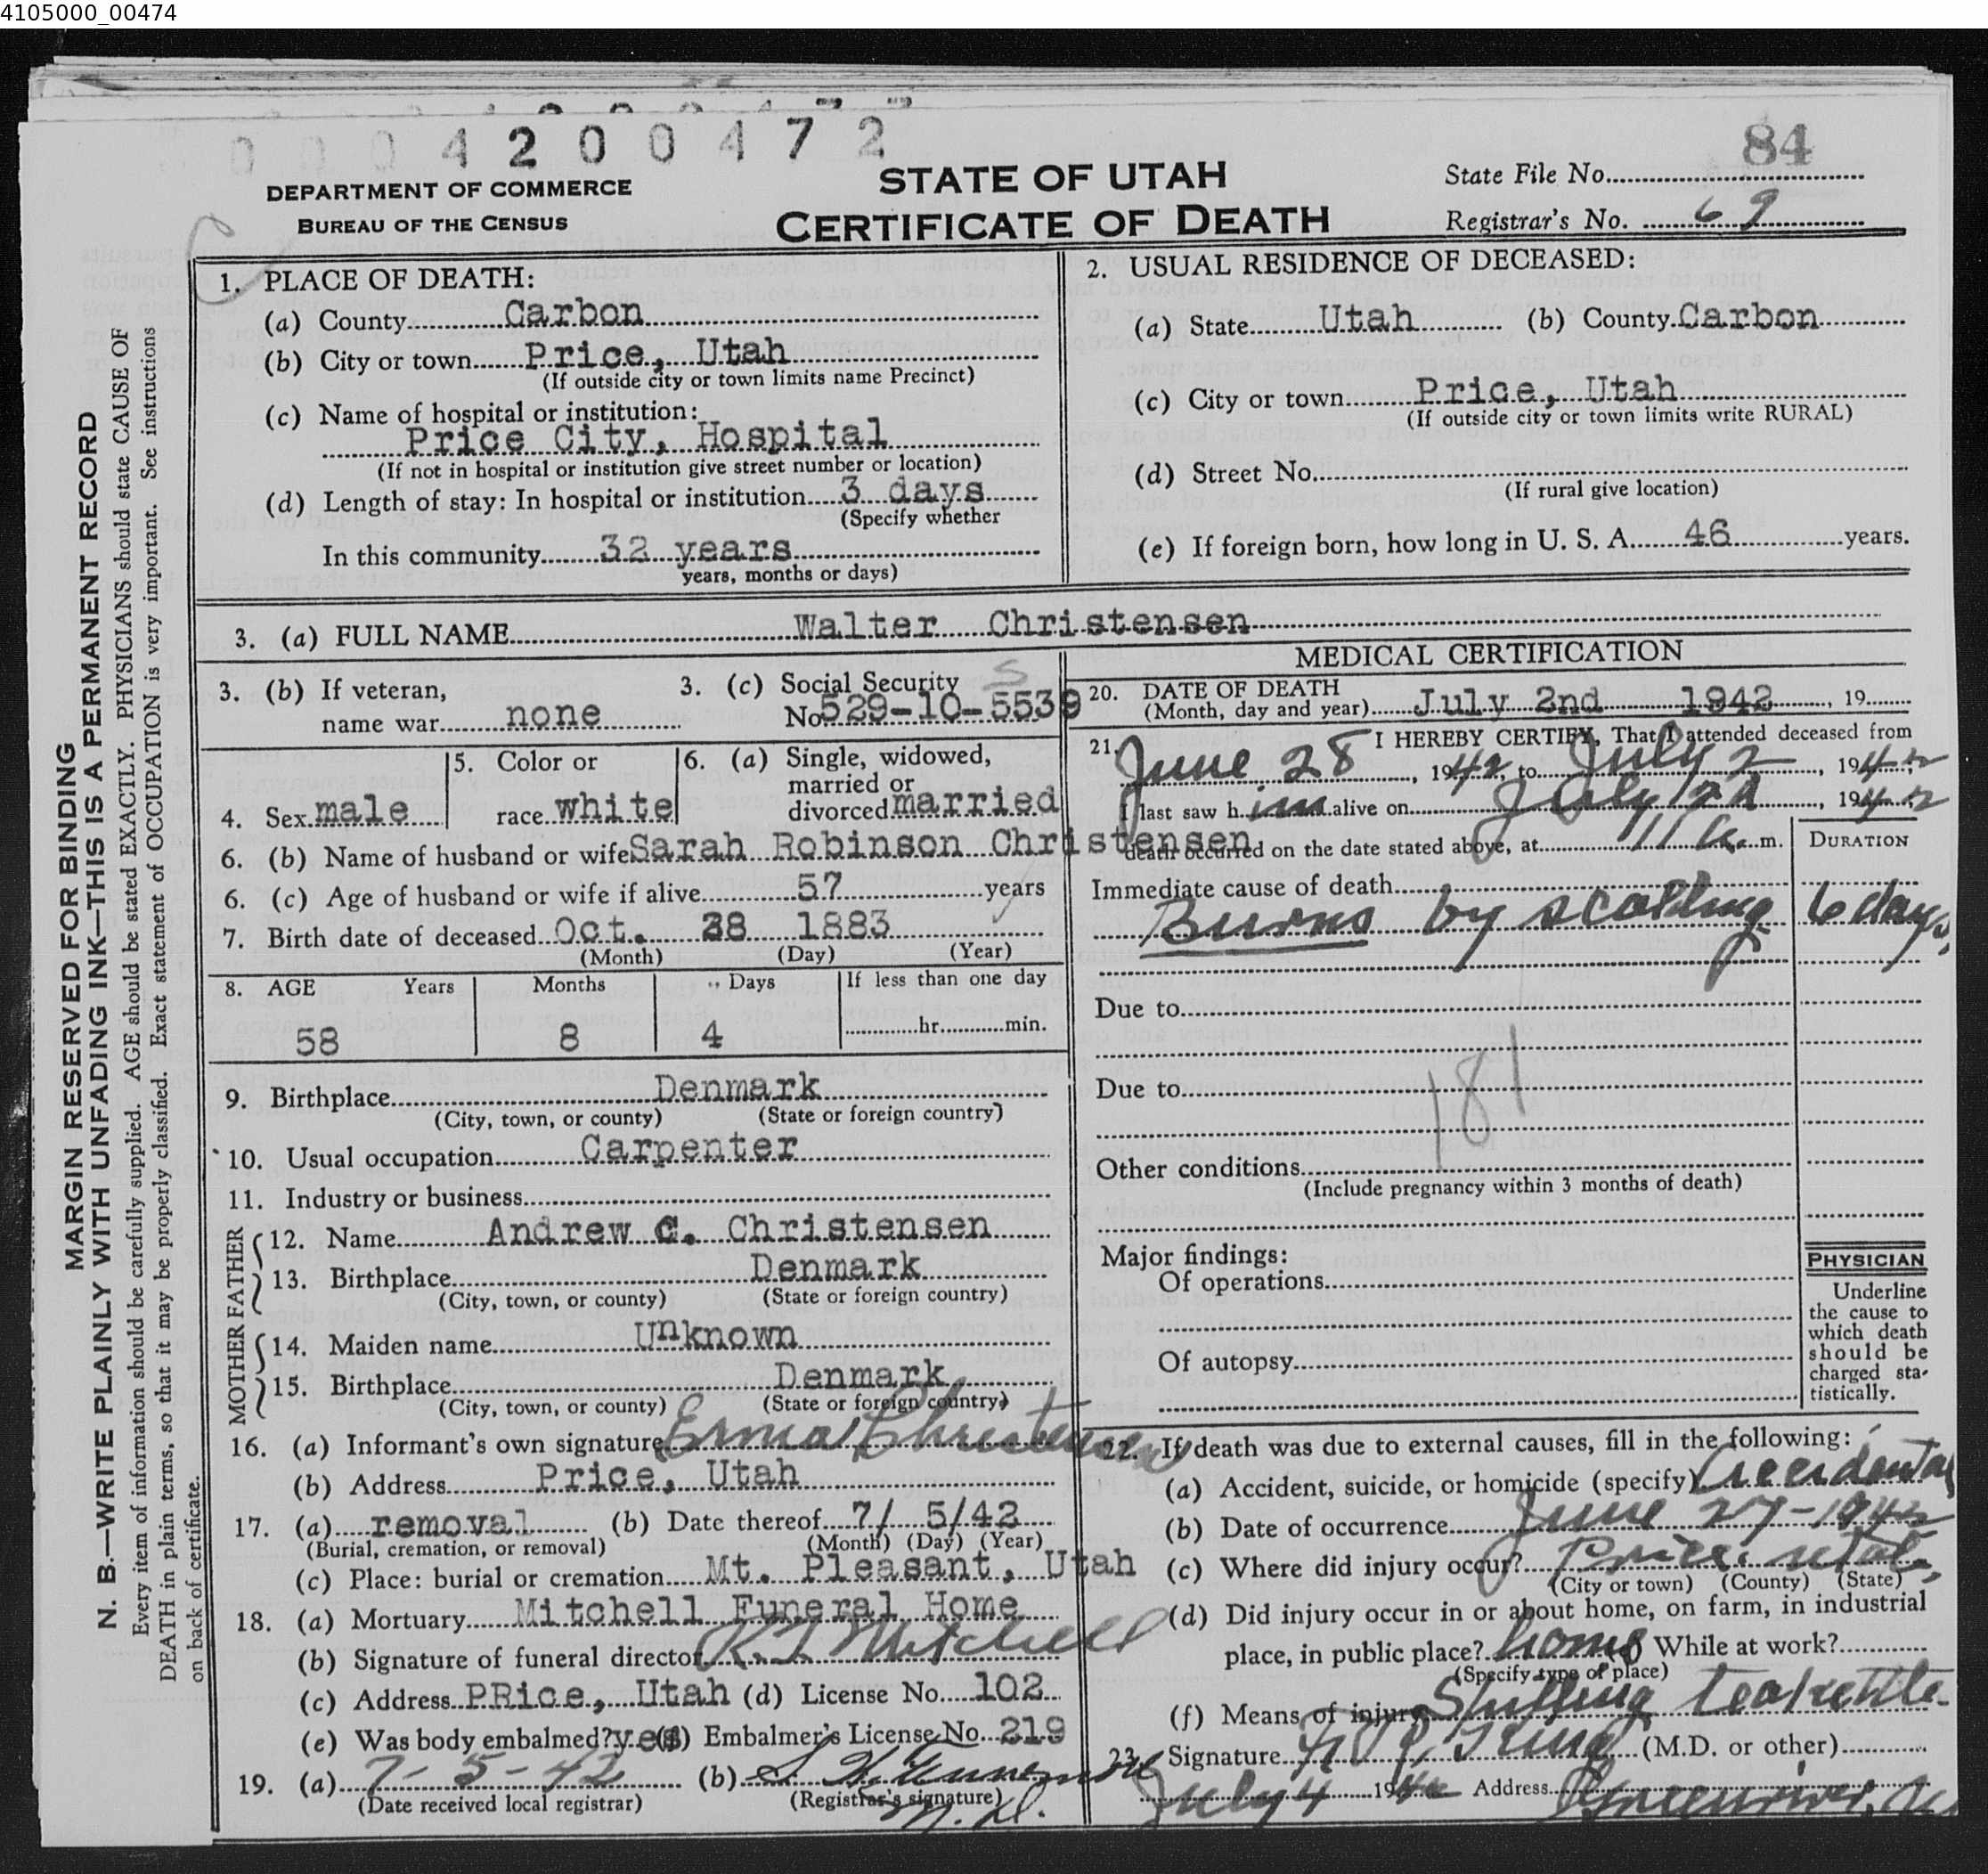 4105000_00474
0004200472
84
DEPARTMENT OF COMMERCE
BUREAU OF THE CENSUS
STATE OF UTAH
CERTIFICATE OF DEATH
State File No.
Registrar's No. 69
MARGIN RESERVED FOR BINDING
N. B.—WRITE PLAINLY WITH UNFADING INK—THIS IS A PERMANENT RECORD
Every item of information should be carefully supplied. AGE should be stated EXACTLY. PHYSICIANS should state CAUSE OF
DEATH in plain terms, so that it may be properly classified. Exact statement of OCCUPATION is very important. See instructions
on back of certificate.
1. PLACE OF DEATH:
(a) County Carbon
(b) City or town Price, Utah
(If outside city or town limits name Precinct)
(c) Name of hospital or institution:
Price City, Hospital
(If not in hospital or institution give street number or location)
(d) Length of stay: In hospital or institution 3 days
(Specify whether
In this community 32 years
years, months or days)
2. USUAL RESIDENCE OF DECEASED:
(a) State Utah (b) County Carbon
(c) City or town Price, Utah
(If outside city or town limits write RURAL)
(d) Street No.
(If rural give location)
(e) If foreign born, how long in U. S. A. 46 years.
3. (a) FULL NAME Walter Christensen
3. (b) If veteran,
name war none
3. (c) Social Security S
No. 529-10-5539
4. Sex male
5. Color or
race white
6. (a) Single, widowed,
married or
divorced married
6. (b) Name of husband or wife Sarah Robinson Christensen
6. (c) Age of husband or wife if alive 57 years
7. Birth date of deceased Oct. 28 1883
(Month) (Day) (Year)
8. AGE Years Months Days If less than one day
58 8 4 hr. min.
9. Birthplace Denmark
(City, town, or county) (State or foreign country)
10. Usual occupation Carpenter
11. Industry or business
FATHER
12. Name Andrew C. Christensen
13. Birthplace Denmark
(City, town, or county) (State or foreign country)
MOTHER
14. Maiden name Unknown
15. Birthplace Denmark
(City, town, or county) (State or foreign country)
16. (a) Informant's own signature Erma Christensen
(b) Address Price, Utah
17. (a) removal (b) Date thereof 7/ 5/42
(Burial, cremation, or removal) (Month) (Day) (Year)
(c) Place: burial or cremation Mt. Pleasant, Utah
18. (a) Mortuary Mitchell Funeral Home
(b) Signature of funeral director Mitchell
(c) Address PRice, Utah (d) License No. 102
(e) Was body embalmed? yes Embalmer's License No. 219
19. (a) 7-5-42 (b)
(Date received local registrar) (Registrar's signature)
M.D.
MEDICAL CERTIFICATION
20. DATE OF DEATH
(Month, day and year) July 2nd 1942, 19
21. I HEREBY CERTIFY, That I attended deceased from
June 28, 1942, to July 2, 1942;
I last saw him alive on July 2d, 1942
death occurred on the date stated above, at 11 a. m.
DURATION
Immediate cause of death
Burns by scalding 6 days
Due to
181
Due to
Other conditions
(Include pregnancy within 3 months of death)
Major findings:
Of operations
Of autopsy
PHYSICIAN
Underline
the cause to
which death
should be
charged sta-
tistically.
22. If death was due to external causes, fill in the following:
(a) Accident, suicide, or homicide (specify) Accidental
(b) Date of occurrence June 27-1942
(c) Where did injury occur? Price, Utah,
(City or town) (County) (State)
(d) Did injury occur in or about home, on farm, in industrial
place, in public place? home While at work?
(Specify type of place)
(f) Means of injury Spilling teakettle
23. Signature King (M.D. or other)
July 4 1942 Address Greenriver, U